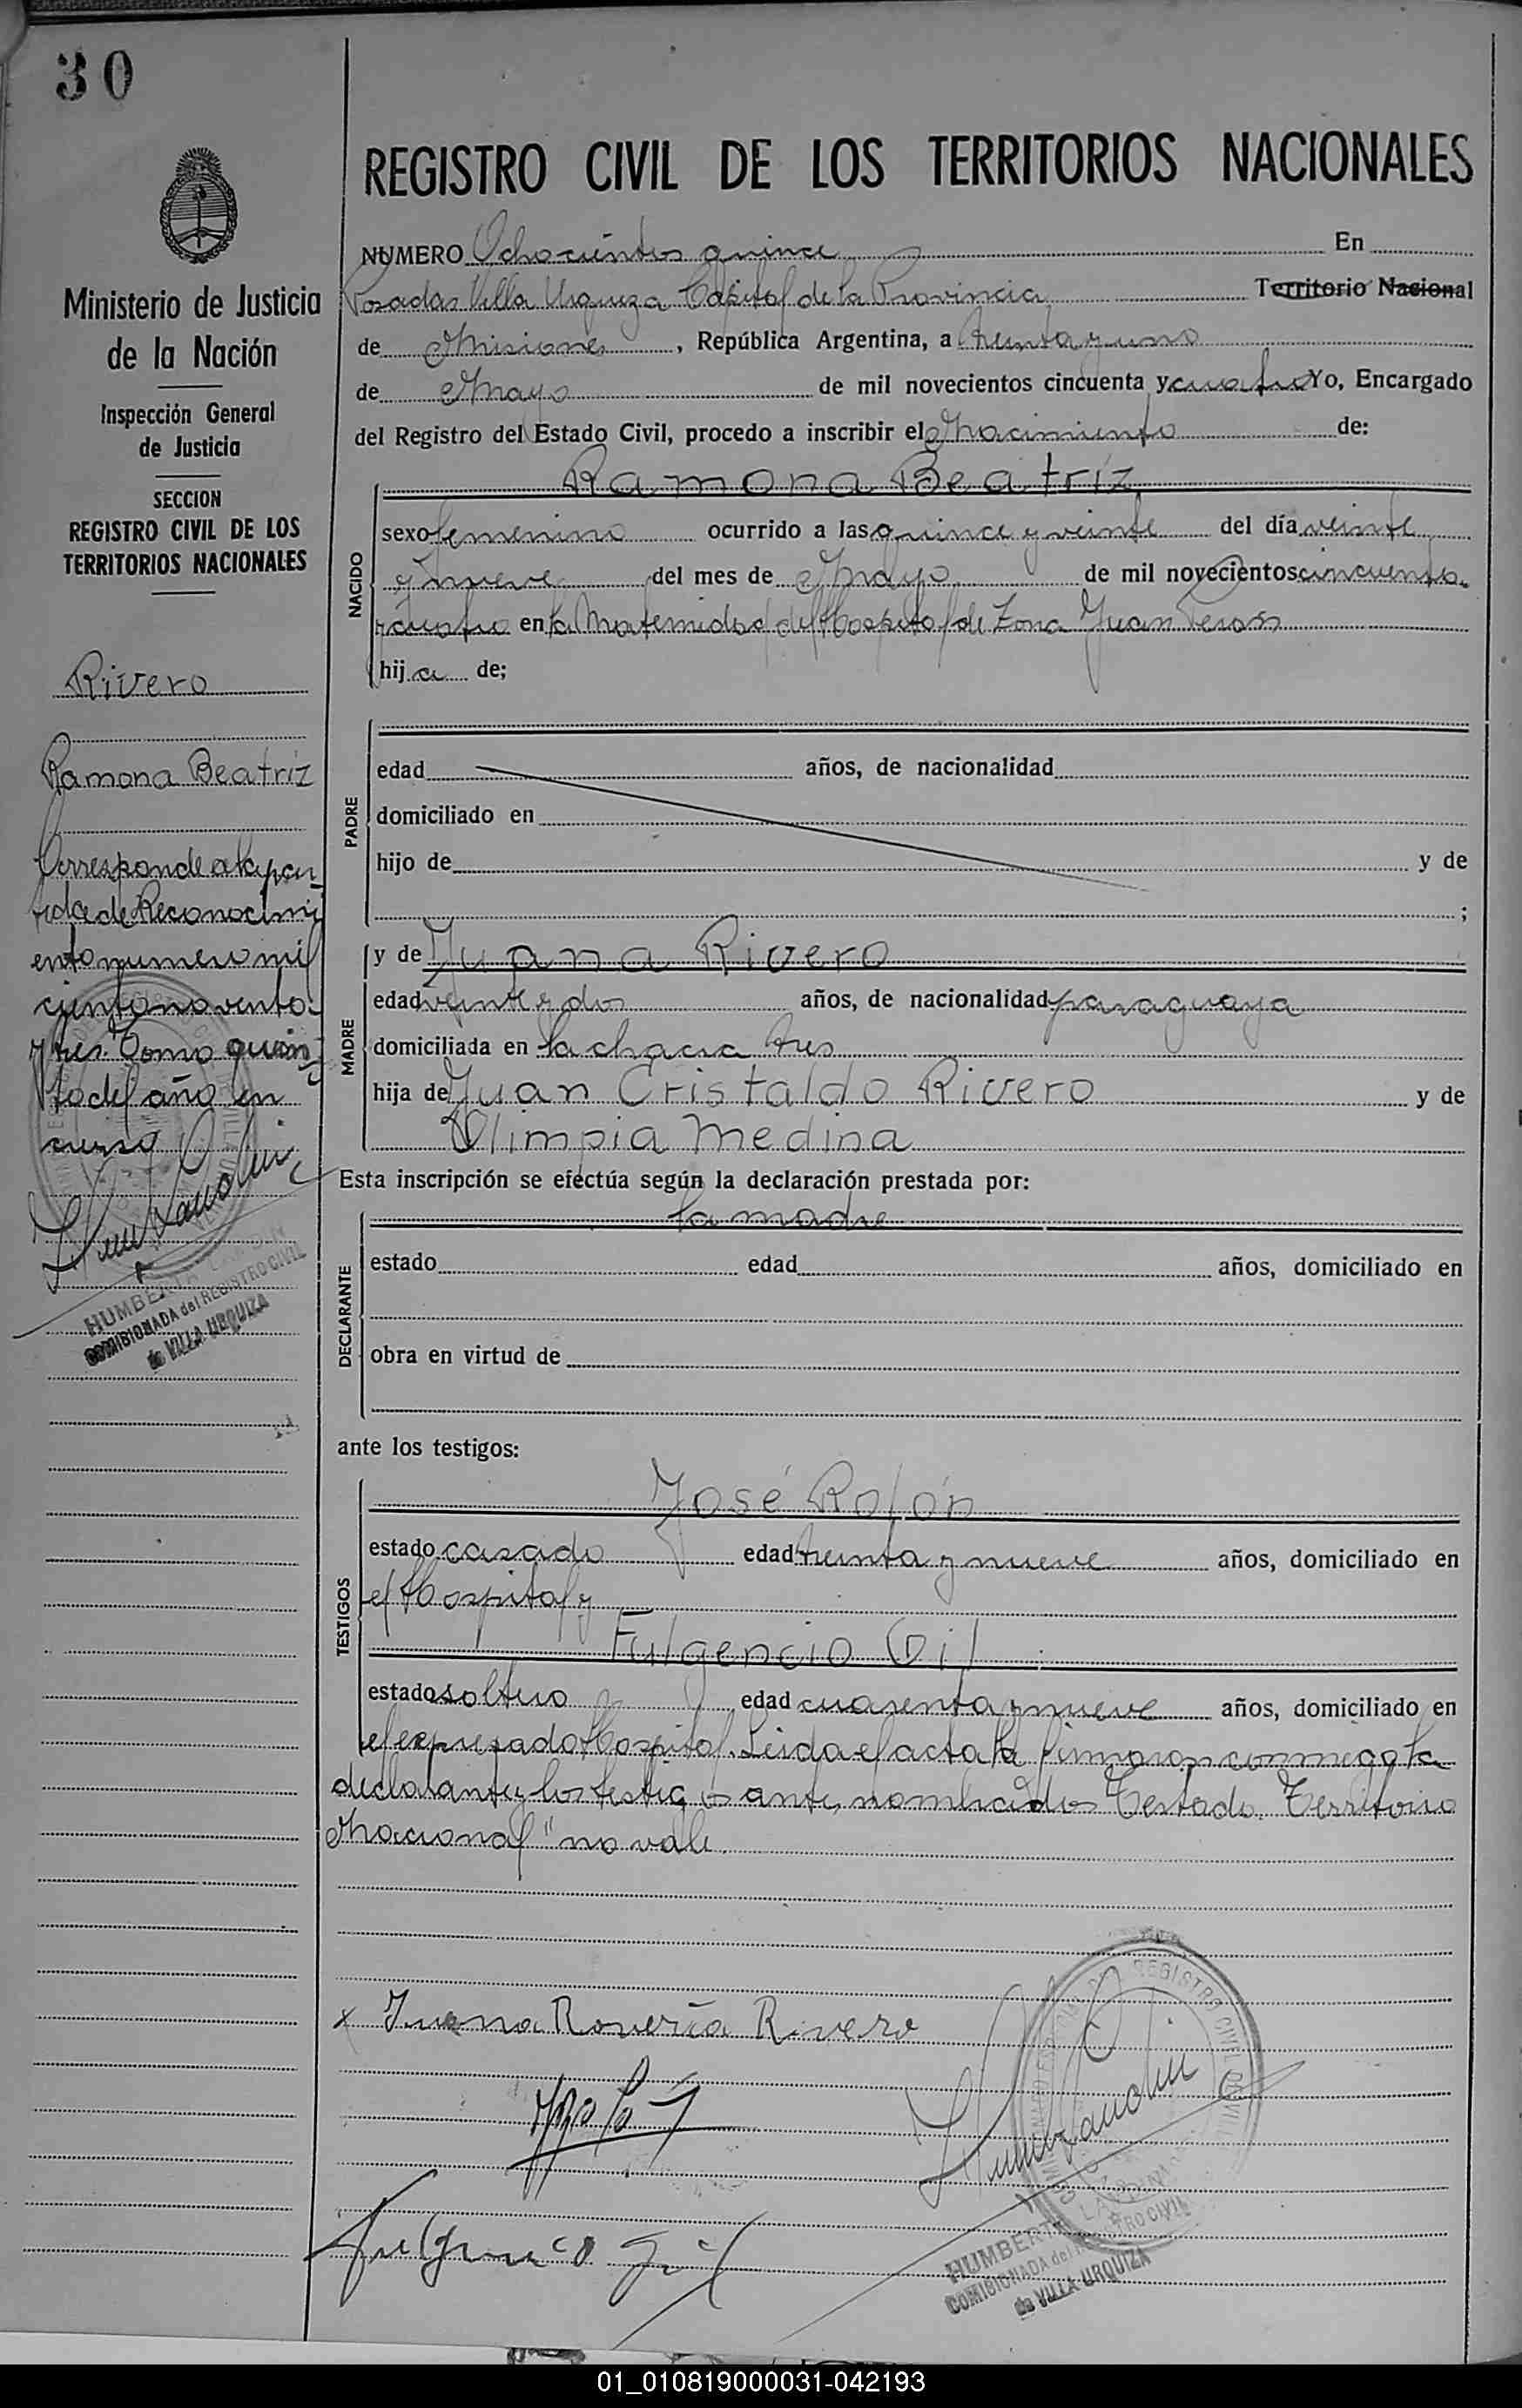 30
Ministerio de Justicia
de la Nación
Inspección General
de Justicia
SECCION
REGISTRO CIVIL DE LOS
TERRITORIOS NACIONALES
Rivero
Ramona Beatriz
Corresponde a la par
tida de Reconocimi
ento numero mil
ciento noventa
y tres Tomo quin
to del año en
curso
HUMBERTA
COMISIONADA del REGISTRO CIVIL
de VILLA URQUIZA
REGISTRO CIVIL DE LOS TERRITORIOS NACIONALES
NUMERO Ochocientos quince En
Posadas Villa Urquiza Capital de la Provincia Territorio Nacional
de Misiones, República Argentina, a treinta y uno
de Mayo de mil novecientos cincuenta y cuatro Yo, Encargado
del Registro del Estado Civil, procedo a inscribir el Nacimiento de:
Ramona Beatriz
NACIDO
sexo femenino ocurrido a las quince y veinte del día veinte
y nueve del mes de Mayo de mil novecientos cincuenta
y cuatro en la Maternidad del Hospital de Zona Juan Peron
hija de;
PADRE
edad años, de nacionalidad
domiciliado en
hijo de y de
;
MADRE
y de Juana Rivero
edad veinte y dos años, de nacionalidad paraguaya
domiciliada en la chacra tres
hija de Juan Cristaldo Rivero y de
Olimpia Medina
Esta inscripción se efectúa según la declaración prestada por:
DECLARANTE
la madre
estado edad años, domiciliado en
obra en virtud de
ante los testigos:
TESTIGOS
José Rolón
estado casado edad treinta y nueve años, domiciliado en
el Hospital y
Fulgencio Gil
estado soltero edad cuarenta y nueve años, domiciliado en
el expresado Hospital. Leida el acta la firmaron conmigo la
declarante y los testigos antes nombrados Testado. Territorio
Nacional" no vale.
x Juana Roveria Rivero
Fulgencio Gil
REGISTRO CIVIL
HUMBERTA
COMISIONADA del REGISTRO CIVIL
de VILLA URQUIZA
01_010819000031-042193